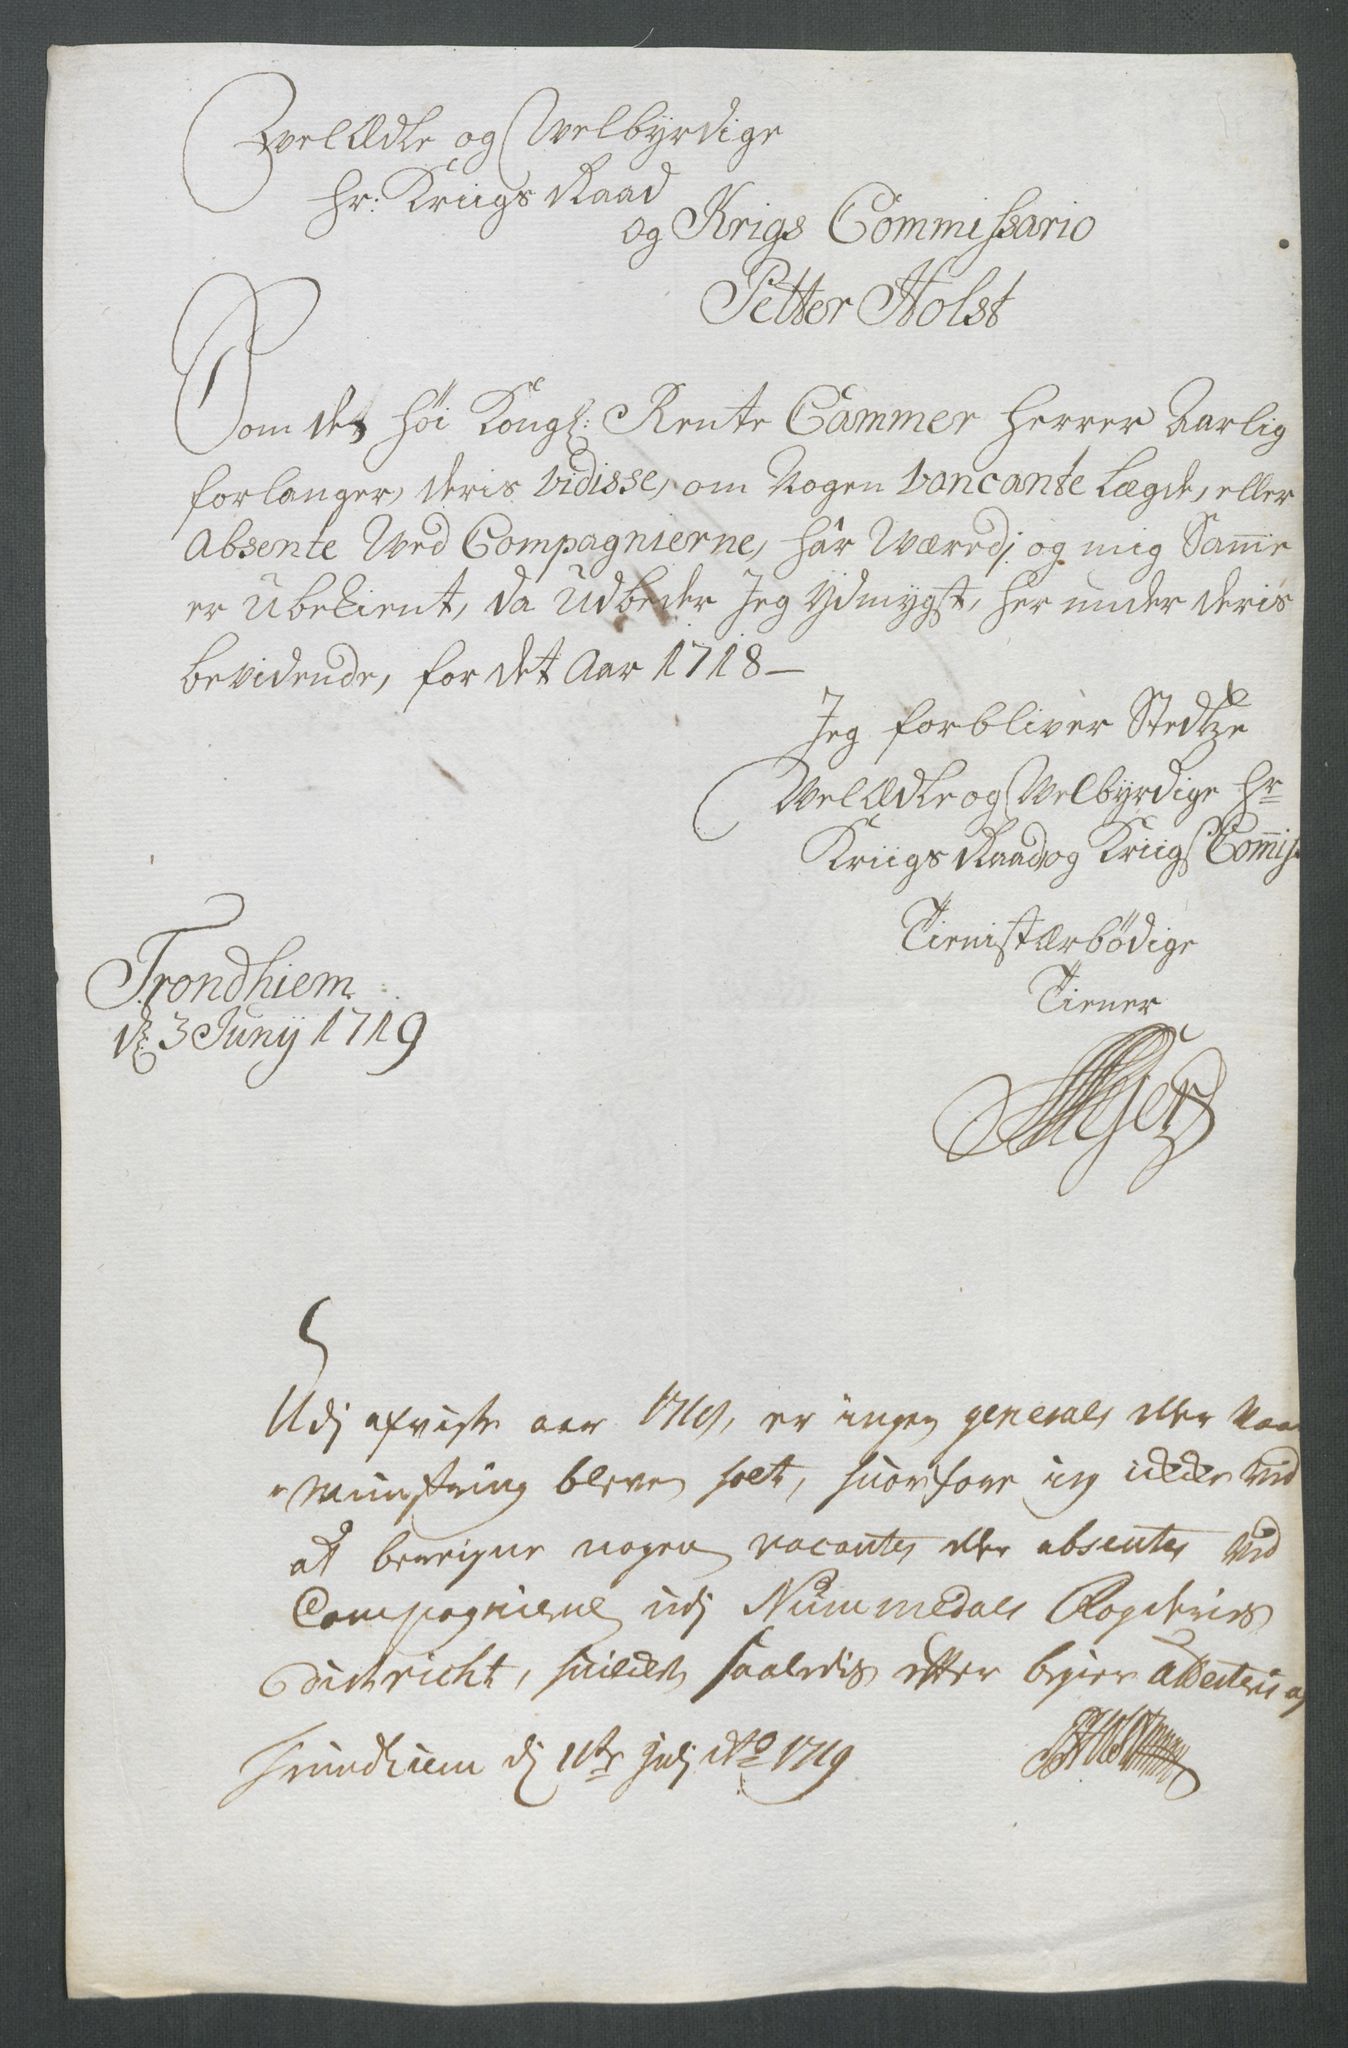 VelÆdle og Velbyrdige
Hr: Kriigs Raad
og Krigs Commissario
Petter Holst
Som det Höi Kongl: Rente Cammer Herrer Aarlig
forlanger, deris vidisse, om Nogen vancante Lægde, eller
Absente Ved Compagnierne, här Væredj og mig Samme
er Ubekient, da Udbeder Jeg Ydmygst, her under deris
bevidende, for det Aar 1718 –
Jeg forbliver Stedtze
VelÆdle og Velbyrdige Hr
Kriigs Raad og Kriigs Commis
Tienistærbödige
Tiener
Trondhiem
d: 3 Junij 1719
Udj afvigte aar 1718, er ingen generals eller
Mynstring bleven holt, huorfore jeg icke ved
at benegne nogen vacante eller absente ved
Compagnierne udj Nummedals Fogderies
District, huilcket saaledis effter begier attesteris af
Trundhiem dj 11te julj Ao 1719